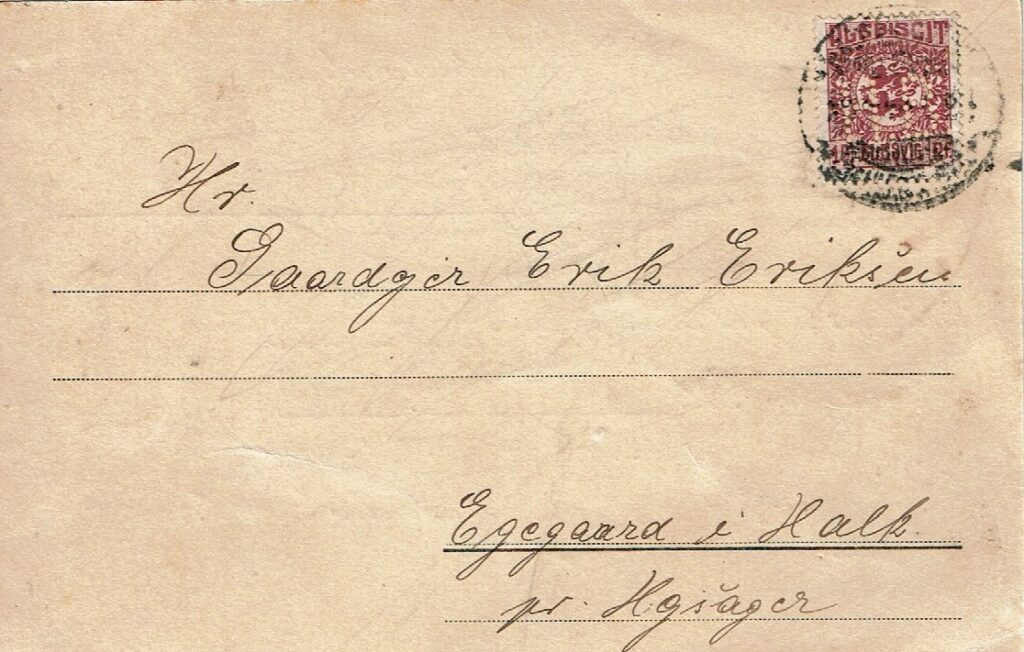 PLEBISCIT
SLESVIG
Hr.
Gaardejer Erik Eriksen
Egegaard i Halk.
pr.